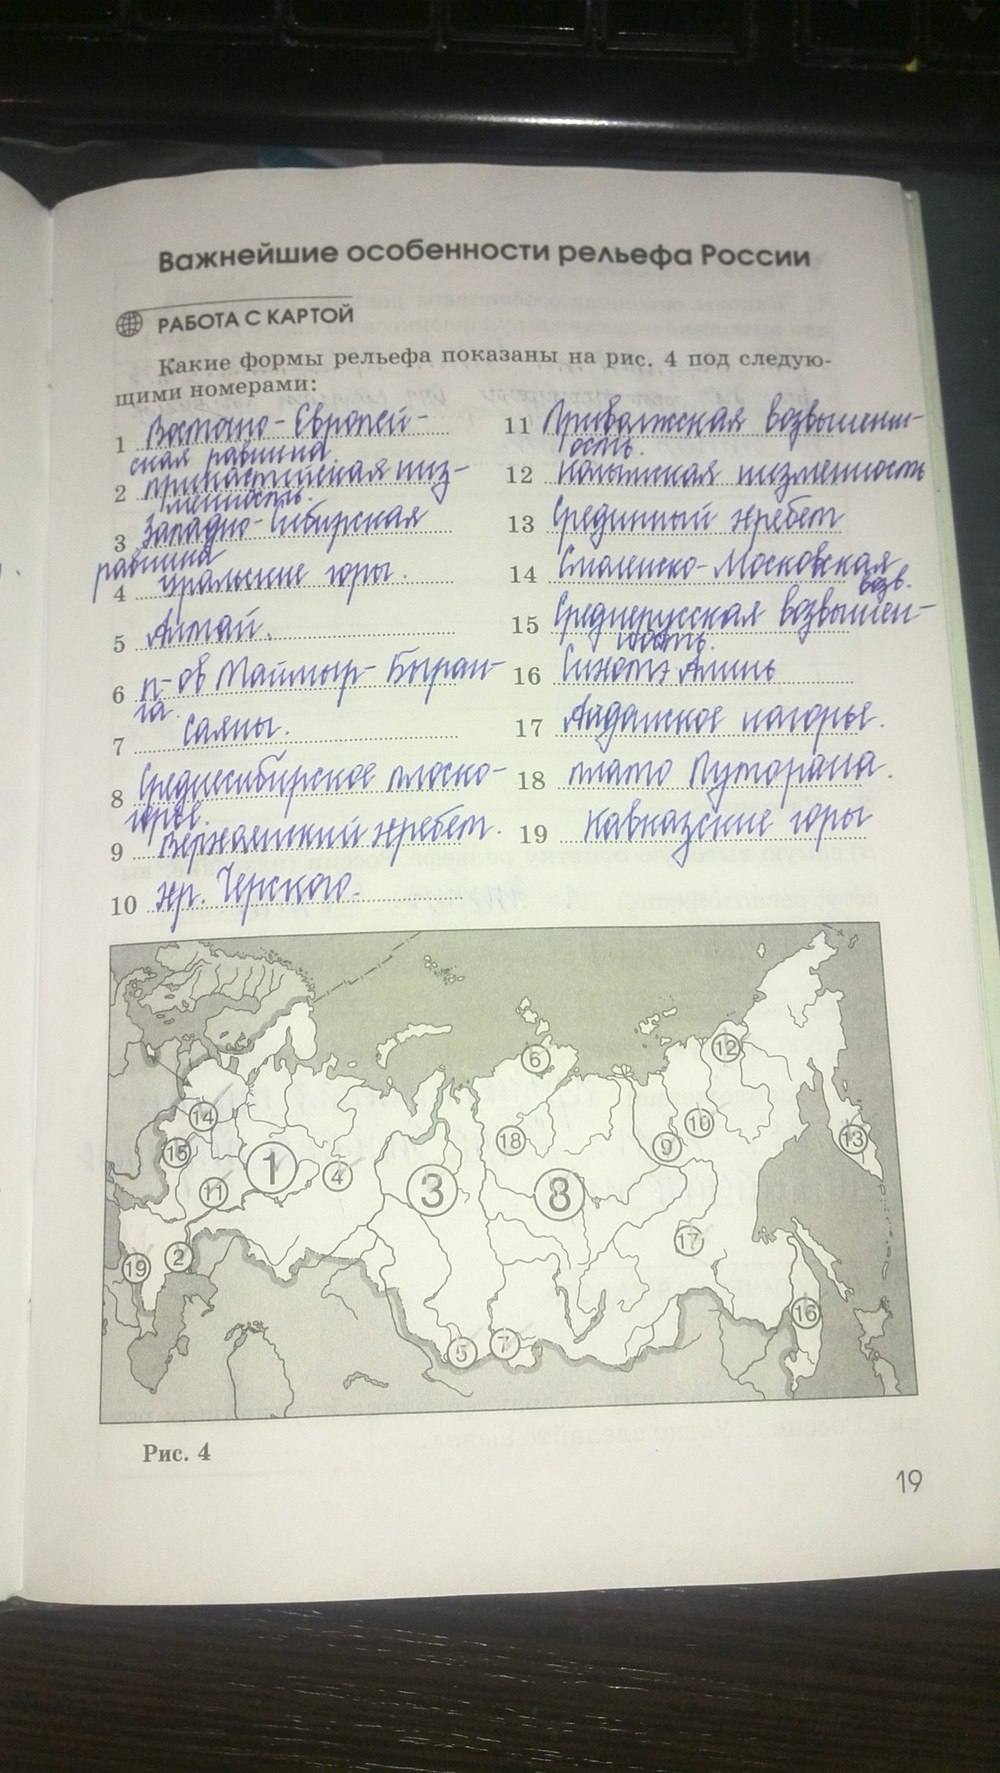 Важнейшие особенности рельефа России
РАБОТА С КАРТОЙ
Какие формы рельефа показаны на рис. 4 под следую-
щими номерами:
1 Восточно-Европей-
ская равнина
2 прикаспийская низ-
менность.
3 Западно-Сибирская
равнина
4 Уральские горы.
5 Алтай.
6 п-ов Таймыр-Бырран-
га.
7 Саяны.
8 Среднесибирское плоско-
горье.
9 Верхоянский хребет.
10 хр. Черского.
11 Приволжская возвышенн-
ость.
12 Колымская низменность
13 Срединный хребет
14 Смоленско-Московская
возв.
15 Среднерусская возвышен-
ность.
16 Сихотэ Алинь
17 Алданское нагорье.
18 плато Путорана.
19 Кавказские горы
1
2
3
4
5
6
7
8
9
10
11
12
13
14
15
16
17
18
19
Рис. 4
19